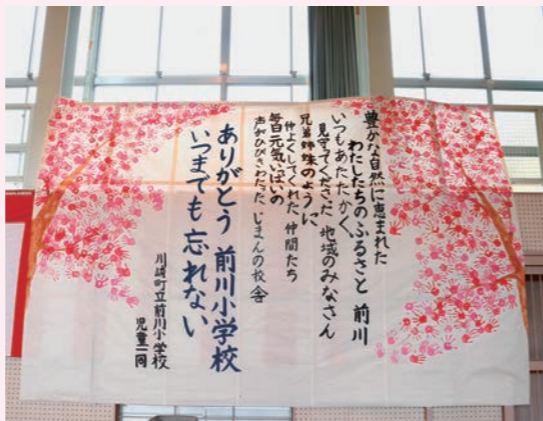 豊かな自然に恵まれた
わたしたちのふるさと 前川
いつもあたたかく、
見守ってくださった 地域のみなさん
兄弟姉妹のように
仲よくしてくれた 仲間たち
毎日元気いっぱいの
声がひびきわたった じまんの校舎
ありがとう 前川小学校
いつまでも忘れない
川崎町立前川小学校
児童一同